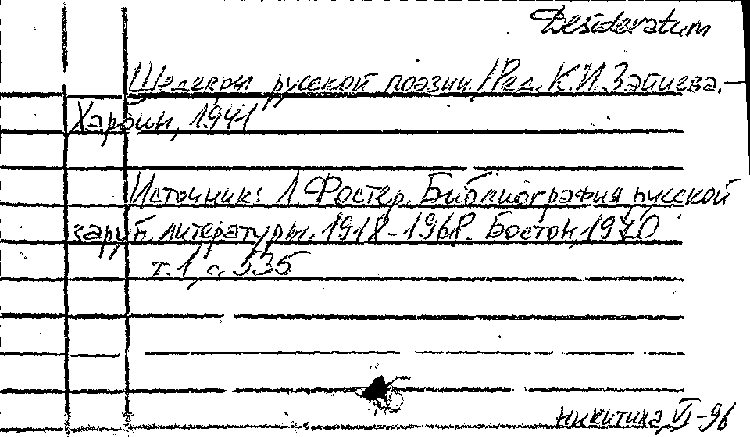 Desideratum
Шедевры русской поэзии /Ред. К.И.Зайцева. –
Харбин, 1941
Источник: Л. Фостер. Библиография русской
заруб. литературы. 1918-1968. Бостон, 1970
т.1, с. 535
Никитина, VI-96